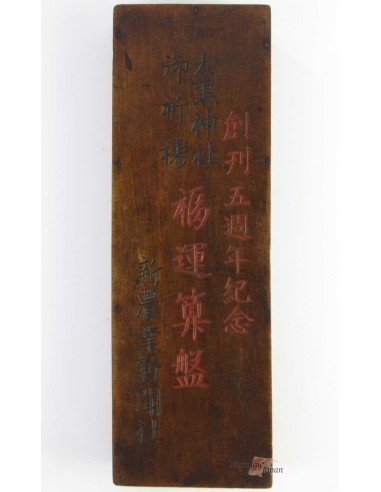 創刊五週年紀念
大黒神社
御祈禱
福運算盤
新農業新聞社
Japan